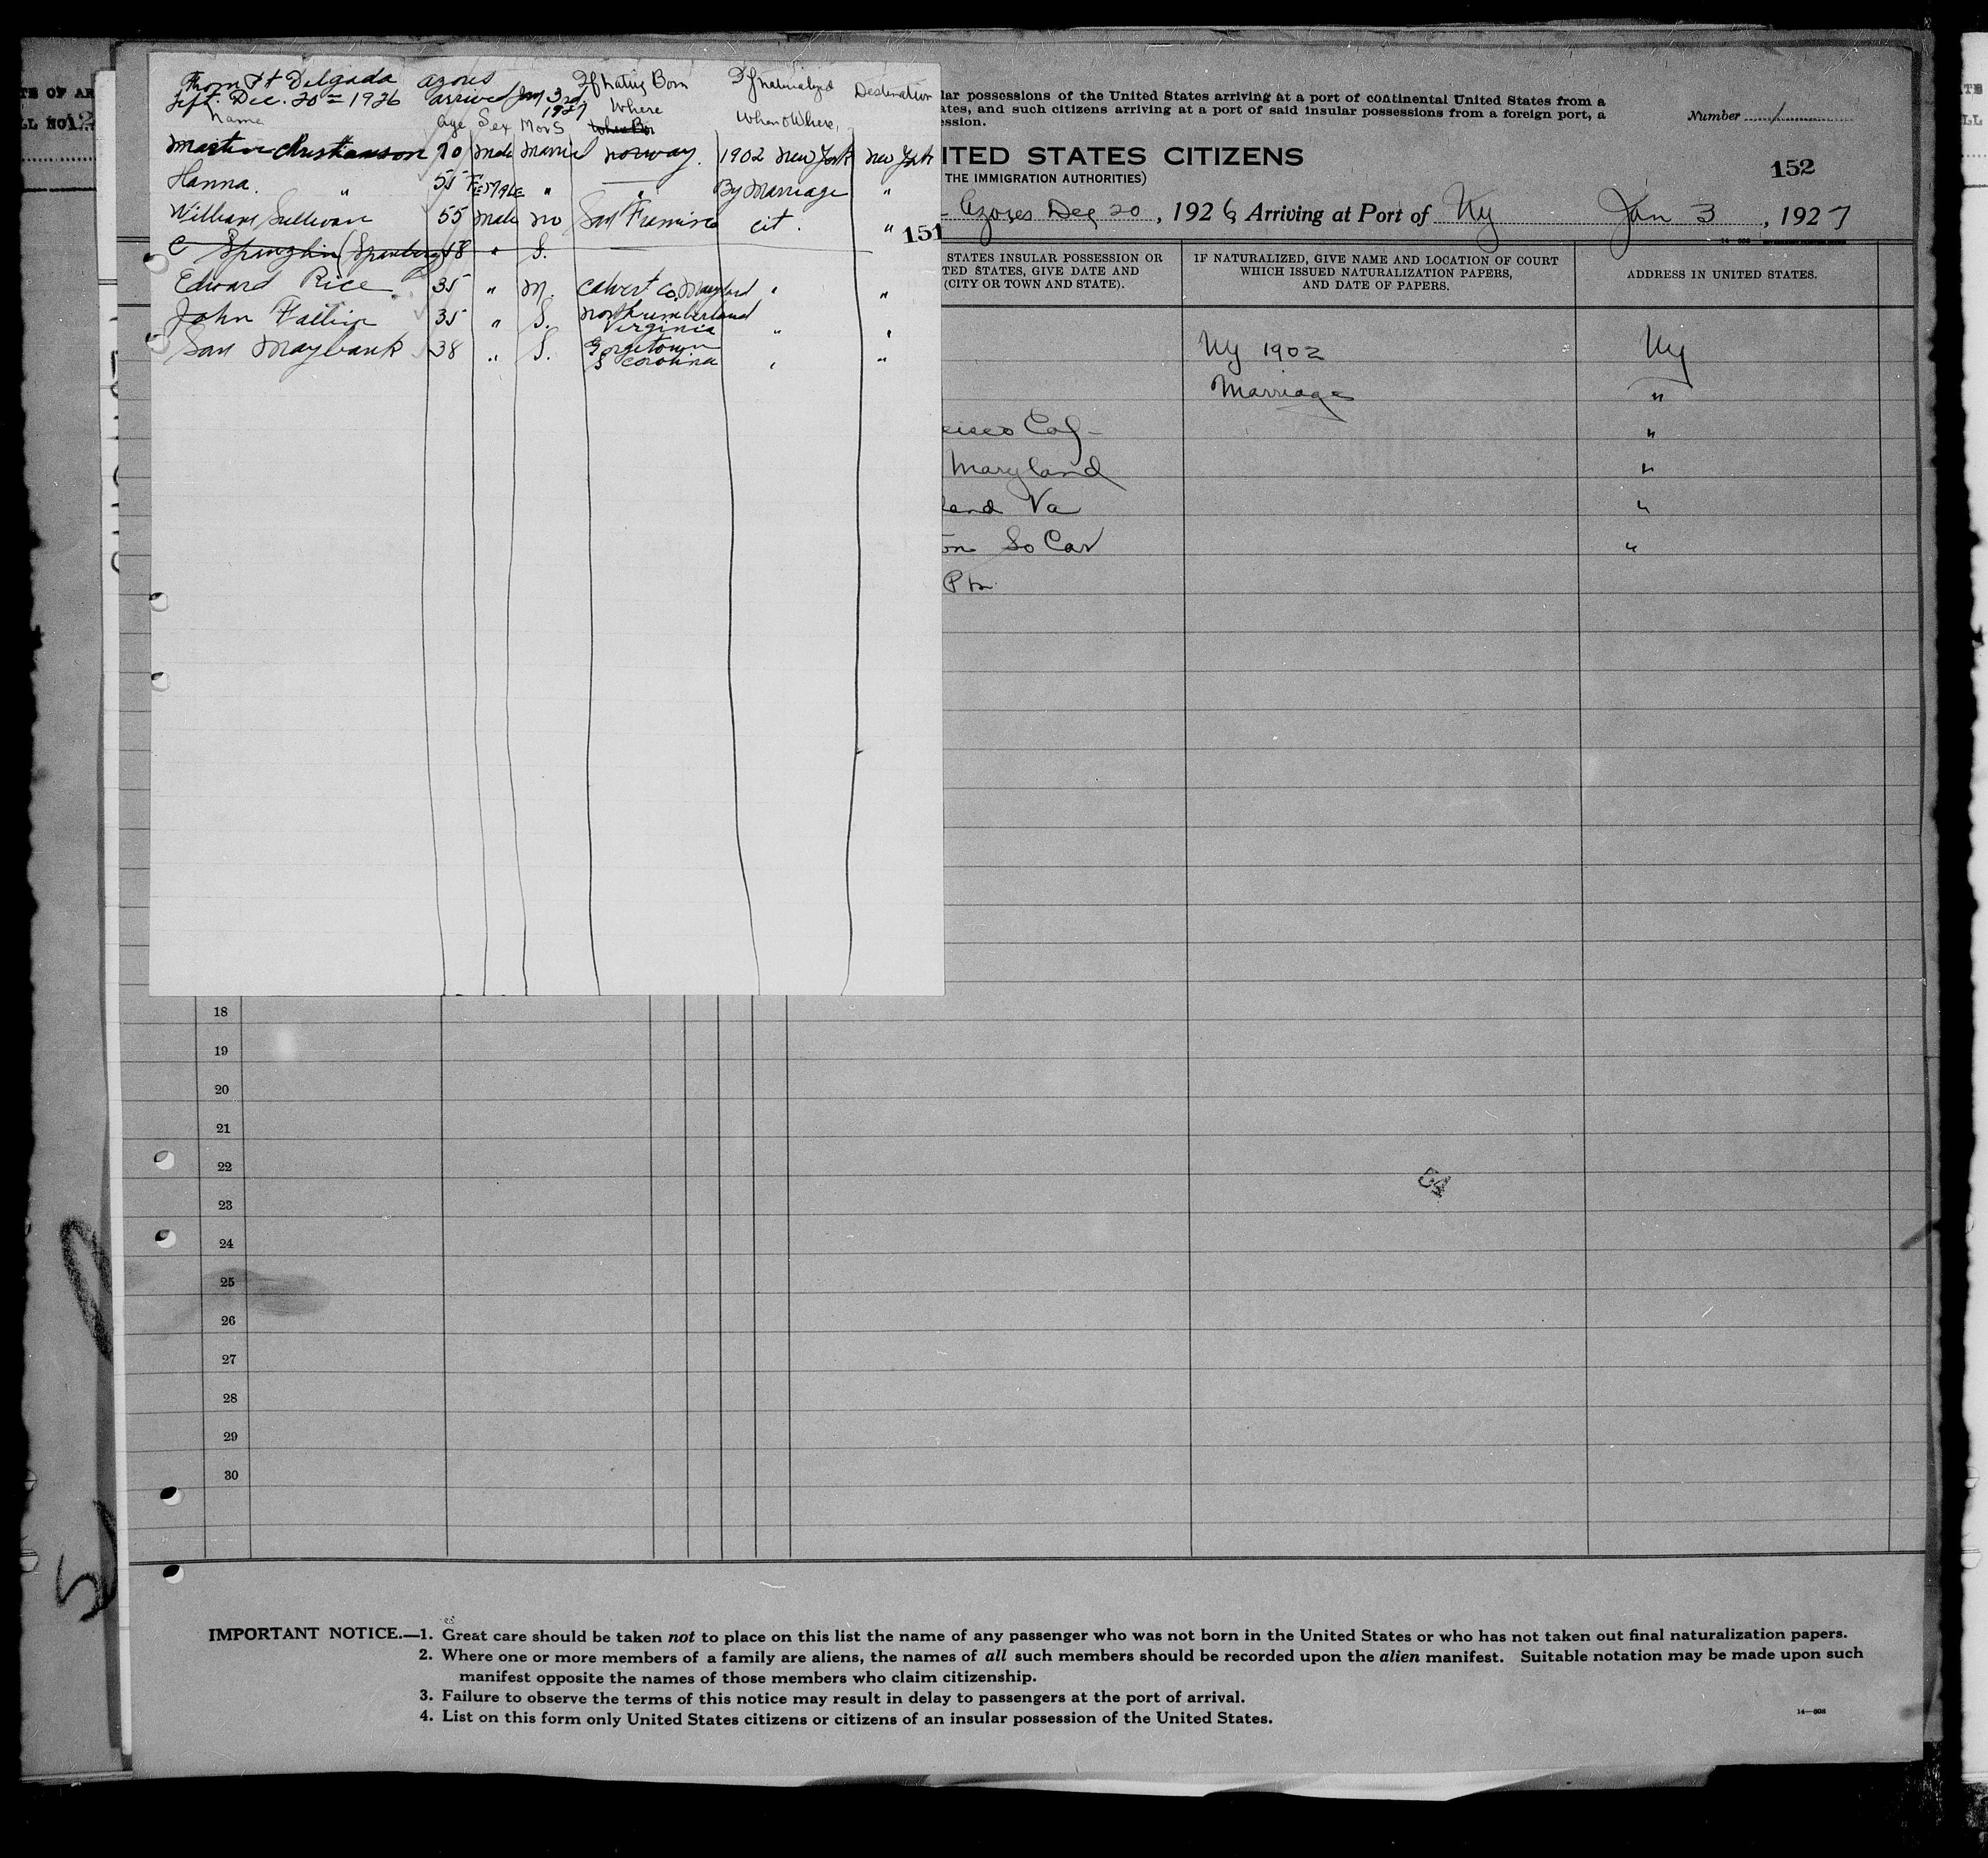 From Pt Delgada Azores
left. Dec. 20 = 1926 arrived Jan 3rd 1927
Name Age Sex M or S If Native Born Where If Naturalized When & Where, Destination
Martin Christianson 70 Male Married Norway. 1902 New York New York
Hanna. " 55 FEMALE " " By Marriage "
William Sullivan 55 Male no San Francisco cit. "
C Spenghin (Spanberg) 48 " S.
Edward Rice 35 " M. Calvert Co. Maryland " "
John Fallin 35 " S. Northumberland Virginia " "
Sam Maybank 38 " S. Gorgetown S Carolina " "
151
lar possessions of the United States arriving at a port of continental United States from a
ates, and such citizens arriving at a port of said insular possessions from a foreign port, a
ession.
Number 1
ITED STATES CITIZENS
THE IMMIGRATION AUTHORITIES)
152
Azores Dec 20, 1926 Arriving at Port of Ny Jan 3, 1927
STATES INSULAR POSSESSION OR
TED STATES, GIVE DATE AND
(CITY OR TOWN AND STATE).
IF NATURALIZED, GIVE NAME AND LOCATION OF COURT
WHICH ISSUED NATURALIZATION PAPERS,
AND DATE OF PAPERS.
ADDRESS IN UNITED STATES.
Ny 1902 Ny
Marriage "
cisco Cal- "
Maryland "
land Va "
on So Car "
18
19
20
21
22
23
24
25
26
27
28
29
30
IMPORTANT NOTICE.—1. Great care should be taken not to place on this list the name of any passenger who was not born in the United States or who has not taken out final naturalization papers.
2. Where one or more members of a family are aliens, the names of all such members should be recorded upon the alien manifest. Suitable notation may be made upon such
manifest opposite the names of those members who claim citizenship.
3. Failure to observe the terms of this notice may result in delay to passengers at the port of arrival.
4. List on this form only United States citizens or citizens of an insular possession of the United States.
14—608